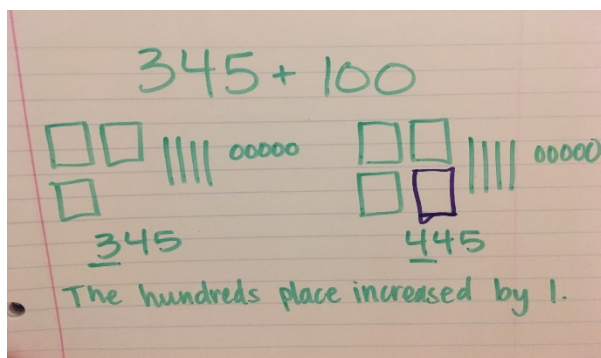 345 + 100
345 445
The hundreds place increased by 1.